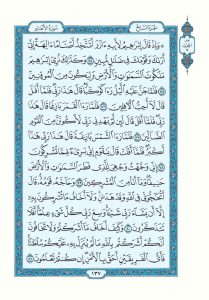 الجزء السابع
سورة الأنعام
۞ وَإِذْ قَالَ إِبْرَٰهِيمُ لِأَبِيهِ ءَازَرَ أَتَتَّخِذُ أَصْنَامًا ءَالِهَةً إِنِّىٓ
أَرَىٰكَ وَقَوْمَكَ فِى ضَلَٰلٍ مُّبِينٍ ٧٤ وَكَذَٰلِكَ نُرِىٓ إِبْرَٰهِيمَ
مَلَكُوتَ ٱلسَّمَٰوَٰتِ وَٱلْأَرْضِ وَلِيَكُونَ مِنَ ٱلْمُوقِنِينَ ٧٥
فَلَمَّا جَنَّ عَلَيْهِ ٱلَّيْلُ رَءَا كَوْكَبًا قَالَ هَٰذَا رَبِّى فَلَمَّآ أَفَلَ
قَالَ لَآ أُحِبُّ ٱلْءَافِلِينَ ٧٦ فَلَمَّا رَءَا ٱلْقَمَرَ بَازِغًا قَالَ هَٰذَا
رَبِّى فَلَمَّآ أَفَلَ قَالَ لَئِن لَّمْ يَهْدِنِى رَبِّى لَأَكُونَنَّ مِنَ
ٱلْقَوْمِ ٱلضَّآلِّينَ ٧٧ فَلَمَّا رَءَا ٱلشَّمْسَ بَازِغَةً قَالَ هَٰذَا
رَبِّى هَٰذَآ أَكْبَرُ فَلَمَّآ أَفَلَتْ قَالَ يَٰقَوْمِ إِنِّى بَرِىٓءٌ مِّمَّا تُشْرِكُونَ
٧٨ إِنِّى وَجَّهْتُ وَجْهِىَ لِلَّذِى فَطَرَ ٱلسَّمَٰوَٰتِ وَٱلْأَرْضَ
حَنِيفًا وَمَآ أَنَا۠ مِنَ ٱلْمُشْرِكِينَ ٧٩ وَحَآجَّهُۥ قَوْمُهُۥ قَالَ
أَتُحَٰٓجُّوٓنِّى فِى ٱللَّهِ وَقَدْ هَدَىٰنِ وَلَآ أَخَافُ مَا تُشْرِكُونَ بِهِۦٓ
إِلَّآ أَن يَشَآءَ رَبِّى شَيْـًٔا وَسِعَ رَبِّى كُلَّ شَىْءٍ عِلْمًا أَفَلَا
تَتَذَكَّرُونَ ٨٠ وَكَيْفَ أَخَافُ مَآ أَشْرَكْتُمْ وَلَا تَخَافُونَ
أَنَّكُمْ أَشْرَكْتُم بِٱللَّهِ مَا لَمْ يُنَزِّلْ بِهِۦ عَلَيْكُمْ سُلْطَٰنًا
فَأَىُّ ٱلْفَرِيقَيْنِ أَحَقُّ بِٱلْأَمْنِ إِن كُنتُمْ تَعْلَمُونَ ٨١
١٣٧